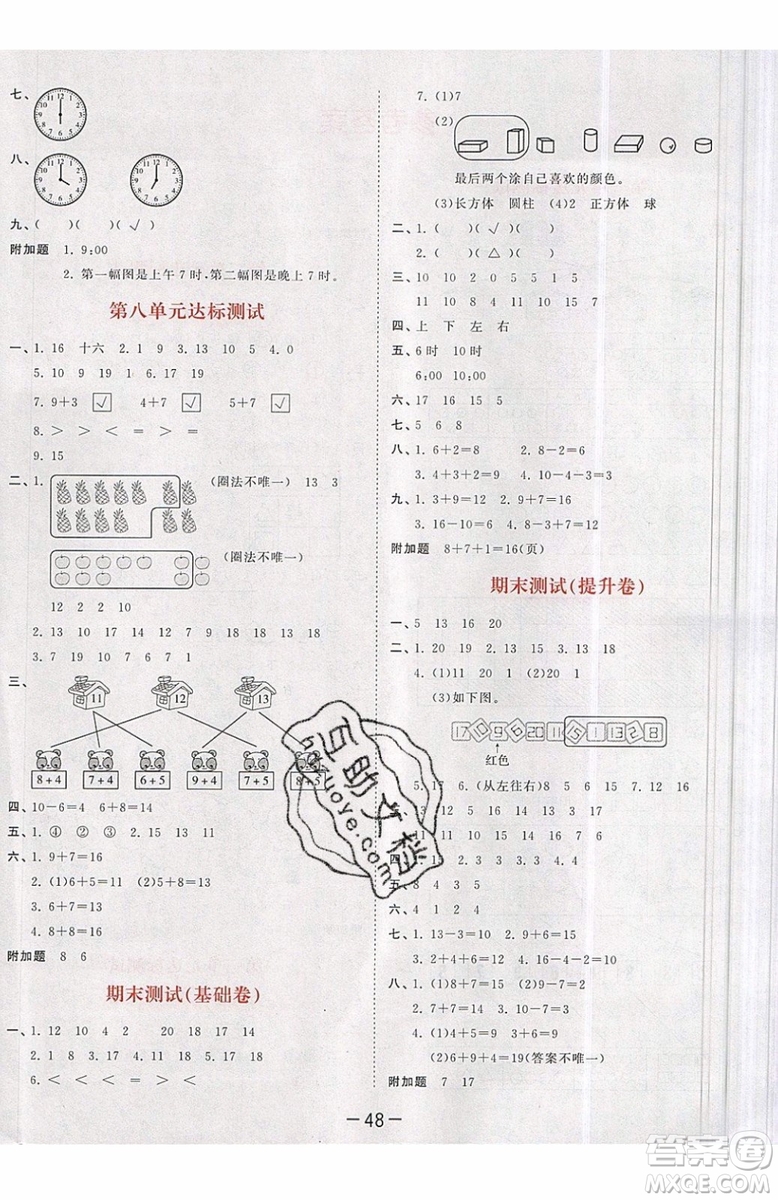 七、
八、
九、(　)(　)(　)(√)
附加题 1. 9:00
2. 第一幅图是上午7时,第二幅图是晚上7时。
第八单元达标测试
一、1. 16 十六 2. 1 9 3. 13 10 5 4. 0
5. 10 9 19 1 6. 17 19
7. 9+3 √ 4+7 √ 5+7 √
8. > > < = > <
9. 15
二、1. (圈法不唯一) 13 3
(圈法不唯一)
12 2 10
2. 13 10 17 14 12 7 18 9 18 13 18
3. 7 19 10 6 7 1
三、
11 12 13
8+4 7+4 6+5 9+4 7+5 8+5
四、10-6=4 6+8=14
五、1. ④ ② 2. 13 15 18
六、1. 9+7=16
2. (1)6+5=11 (2)9+7=16
3. 6+7=13
4. 8+8=16
附加题 8 6
期末测试(基础卷)
一、1. 12 10 4 2 20 18 17 14
2. 1 8 3. 17 4. 15 17 5. 19 20
6. < < < = = <
7. (1)7
(2)
最后两个涂自己喜欢的颜色。
(3)长方体 圆柱 (4)2 正方体 球
二、1. (　)(√)(　)
2. (　)(△)(　)
三、10 10 2 0 5 5 1 5
11 10 8 4 2 10 8 9
四、上 下 左 右
五、6时 10时
6:00 10:00
六、17 16 15 5
七、5 6 8
八、1. 6+2=8 2. 8-2=6
3. 4+3+2=9 4. 9-4-2=3
九、1. 3+9=12 2. 9+7=16
3. 16-10=6 4. 8-3+7=12
附加题 8+7+1=16(页)
期末测试(提升卷)
一、5 13 16 20
二、1. 20 19 2. 13 5 3. 15 19
4. (1)11 20 1 (2)20 1
(3)如下图。
17 10 9 6 20 11 5 1 13 2 8
红色
5. 17 6. 17 7. (从左往右)8 5 2 7 12 16
三、
11 10
1 2 4 3
五、8 4 3 5
六、4 2 1
七、1. 13-3=10 2. 9+6=15
3. 6+6=12 4. 16-4-2=10
八、1. (1)8+7=15 (2)9+8=17
2. 7+7=14
3. 9+9=18
4. (1)4+5=9 6+3=9
(2)6+4+9=19(答案不唯一)
附加题 7 17
— 48 —
互助文档
huzuoye.com
答案圈
MXQE.COM